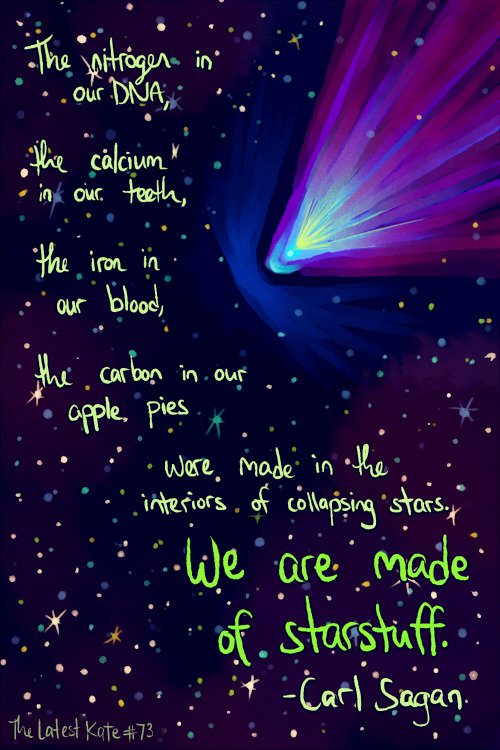 The nitrogen in
our DNA,
the calcium
in our teeth,
the iron in
our blood,
the carbon in our
apple pies
were made in the
interiors of collapsing stars.
We are made
of starstuff.
-Carl Sagan.
The Latest Kate #73